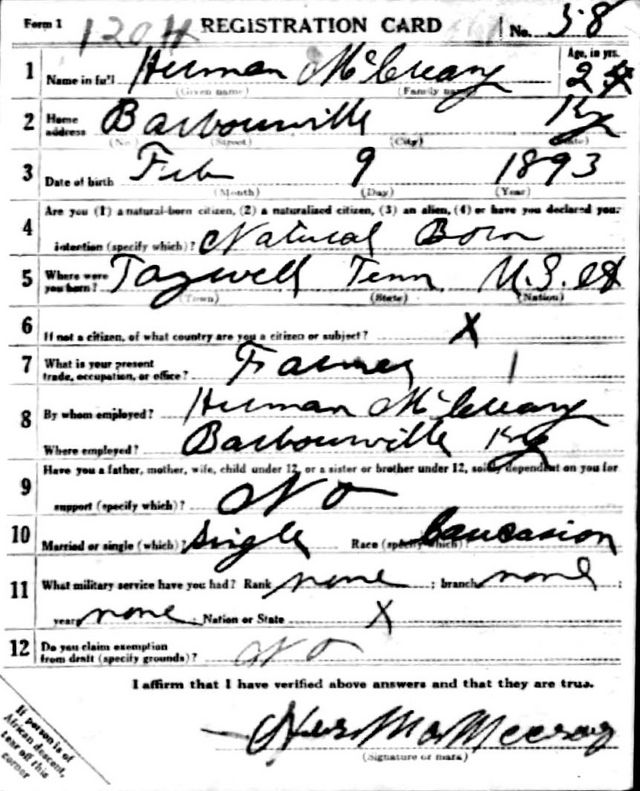 Form 1 REGISTRATION CARD No. 58
1 Name in full Herman McCreary Age, in yrs.
(Given name) (Family name) 24
2 Home address Barbourville Ky
(No.) (Street) (City) (State)
3 Date of birth Feb 9 1893
(Month) (Day) (Year)
4 Are you (1) a natural-born citizen, (2) a naturalized citizen, (3) an alien, (4) or have you declared your
intention (specify which)? Natural Born
5 Where were you born? Tazwell Tenn U.S.A
(Town) (State) (Nation)
6 If not a citizen, of what country are you a citizen or subject? X
7 What is your present trade, occupation, or office? Farmer
8 By whom employed? Herman McCreary
Where employed? Barbourville Ky
9 Have you a father, mother, wife, child under 12, or a sister or brother under 12, solely dependent on you for
support (specify which)? No
10 Married or single (which)? Single Race (specify which)? Caucasion
11 What military service have you had? Rank none ; branch none ;
years none ; Nation or State X
12 Do you claim exemption from draft (specify grounds)? No
I affirm that I have verified above answers and that they are true.
(Signature or mark)
If person is of
African descent,
tear off this
corner